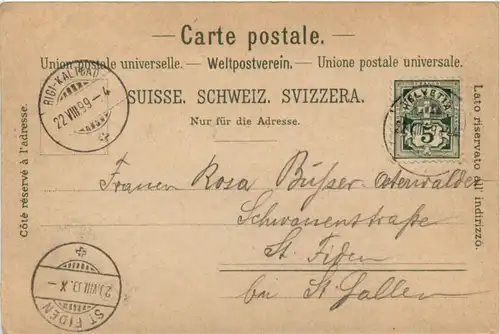 Carte postale.
Union postale universelle. — Weltpostverein. — Unione postale universale.
SUISSE. SCHWEIZ. SVIZZERA.
Nur für die Adresse.
Côté réservé à l'adresse.
Lato riservato all'indirizzo.
RIGI-KALTBAD
22.VIII.99.-4
HELVETIA
5
Frauen Rosa Büsser-Oterwalder
Schwanenstraße
St. Fiden
bei St. Gallen
23.VIII.99.X-
ST. FIDEN